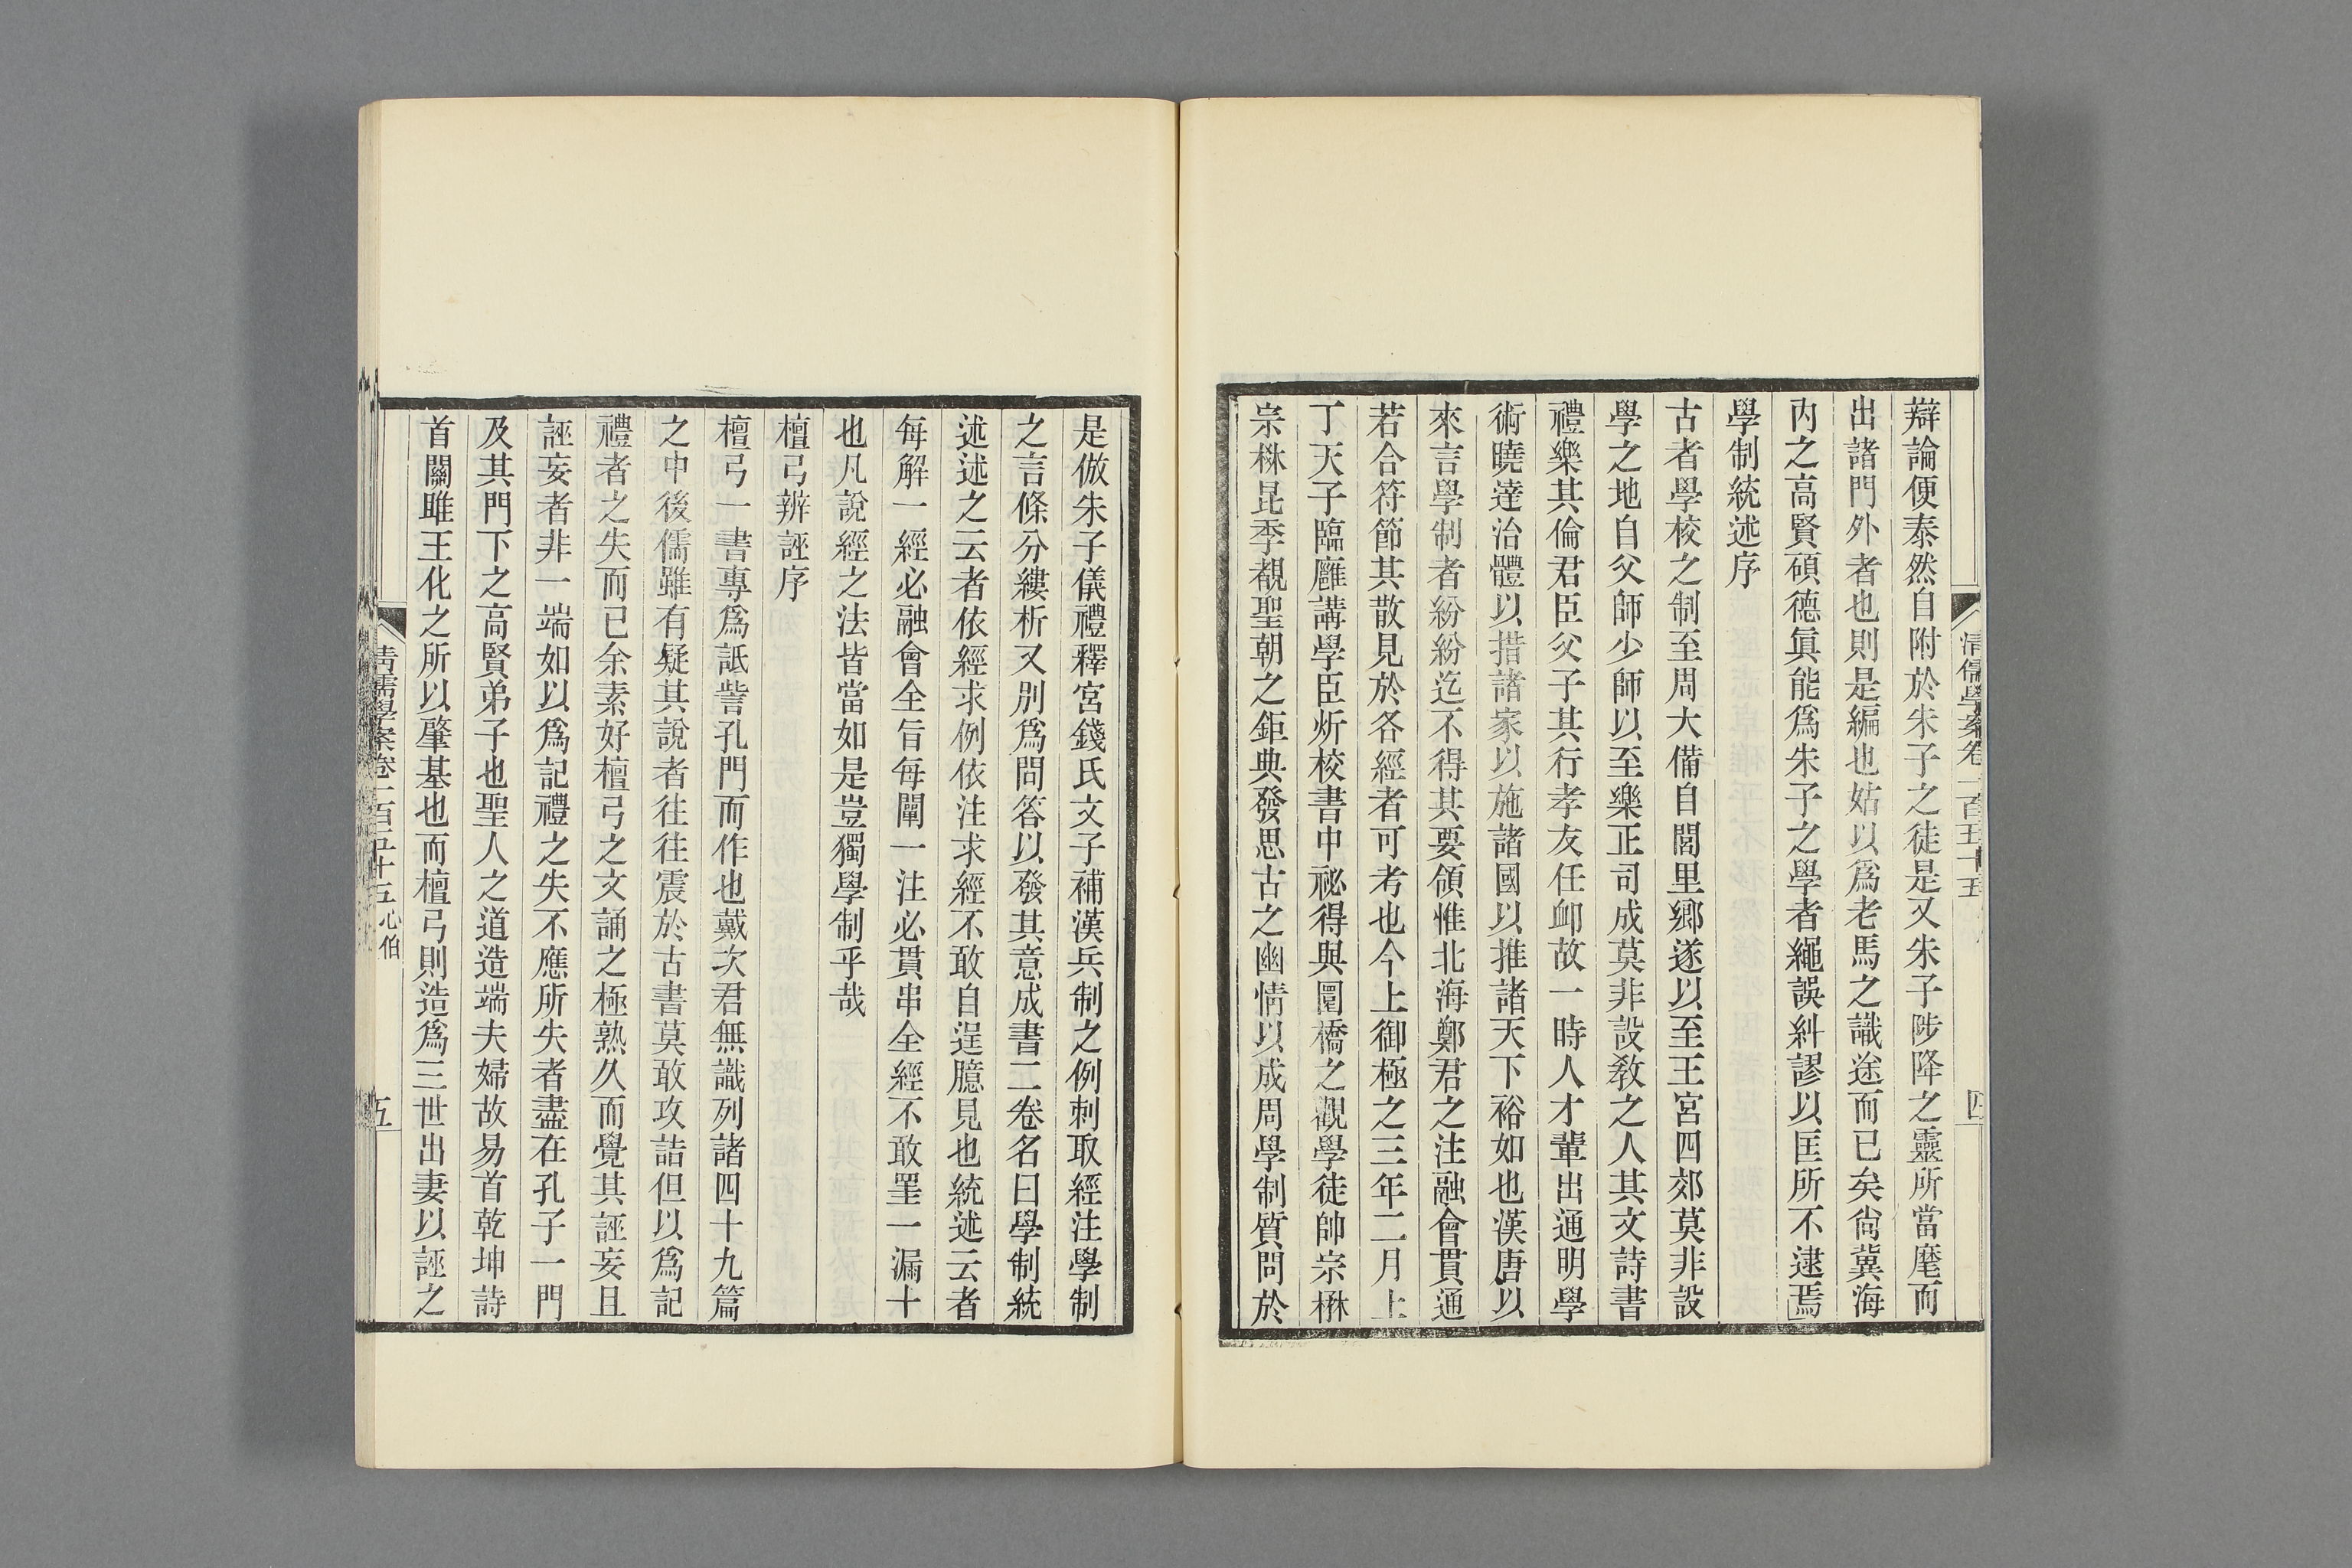 辯論便泰然自附於朱子之徒是又朱子陟降之靈所當麾而
出諸門外者也則是編也姑以爲老馬之識途而已矣尙冀海
內之高賢碩德眞能爲朱子之學者繩誤糾謬以匡所不逮焉
學制統述序
古者學校之制至周大備自閭里鄉遂以至王宮四郊莫非設
學之地自父師少師以至樂正司成莫非設敎之人其文詩書
禮樂其倫君臣父子其行孝友任卹故一時人才輩出通明學
術曉達治體以措諸家以施諸國以推諸天下裕如也漢唐以
來言學制者紛紛迄不得其要領惟北海鄭君之注融會貫通
若合符節其散見於各經者可考也今上御極之三年二月上
丁天子臨廱講學臣炘校書中祕得與圜橋之觀學徒帥宗楙
宗楙昆季覩聖朝之鉅典發思古之幽情以成周學制質問於
清儒學案卷一百五十五
四
是倣朱子儀禮釋宮錢氏文子補漢兵制之例刺取經注學制
之言條分縷析又別爲問答以發其意成書二卷名曰學制統
述述之云者依經求例依注求經不敢自逞臆見也統述云者
每解一經必融會全旨每闡一注必貫串全經不敢罣一漏十
也凡說經之法皆當如是豈獨學制乎哉
檀弓辨誣序
檀弓一書專爲詆訾孔門而作也戴次君無識列諸四十九篇
之中後儒雖有疑其說者往往震於古書莫敢攻詰但以爲記
禮者之失而已余素好檀弓之文誦之極熟久而覺其誣妄且
誣妄者非一端如以爲記禮之失不應所失者盡在孔子一門
及其門下之高賢弟子也聖人之道造端夫婦故易首乾坤詩
首關雎王化之所以肇基也而檀弓則造爲三世出妻以誣之
清儒學案卷一百五十五 心伯
五